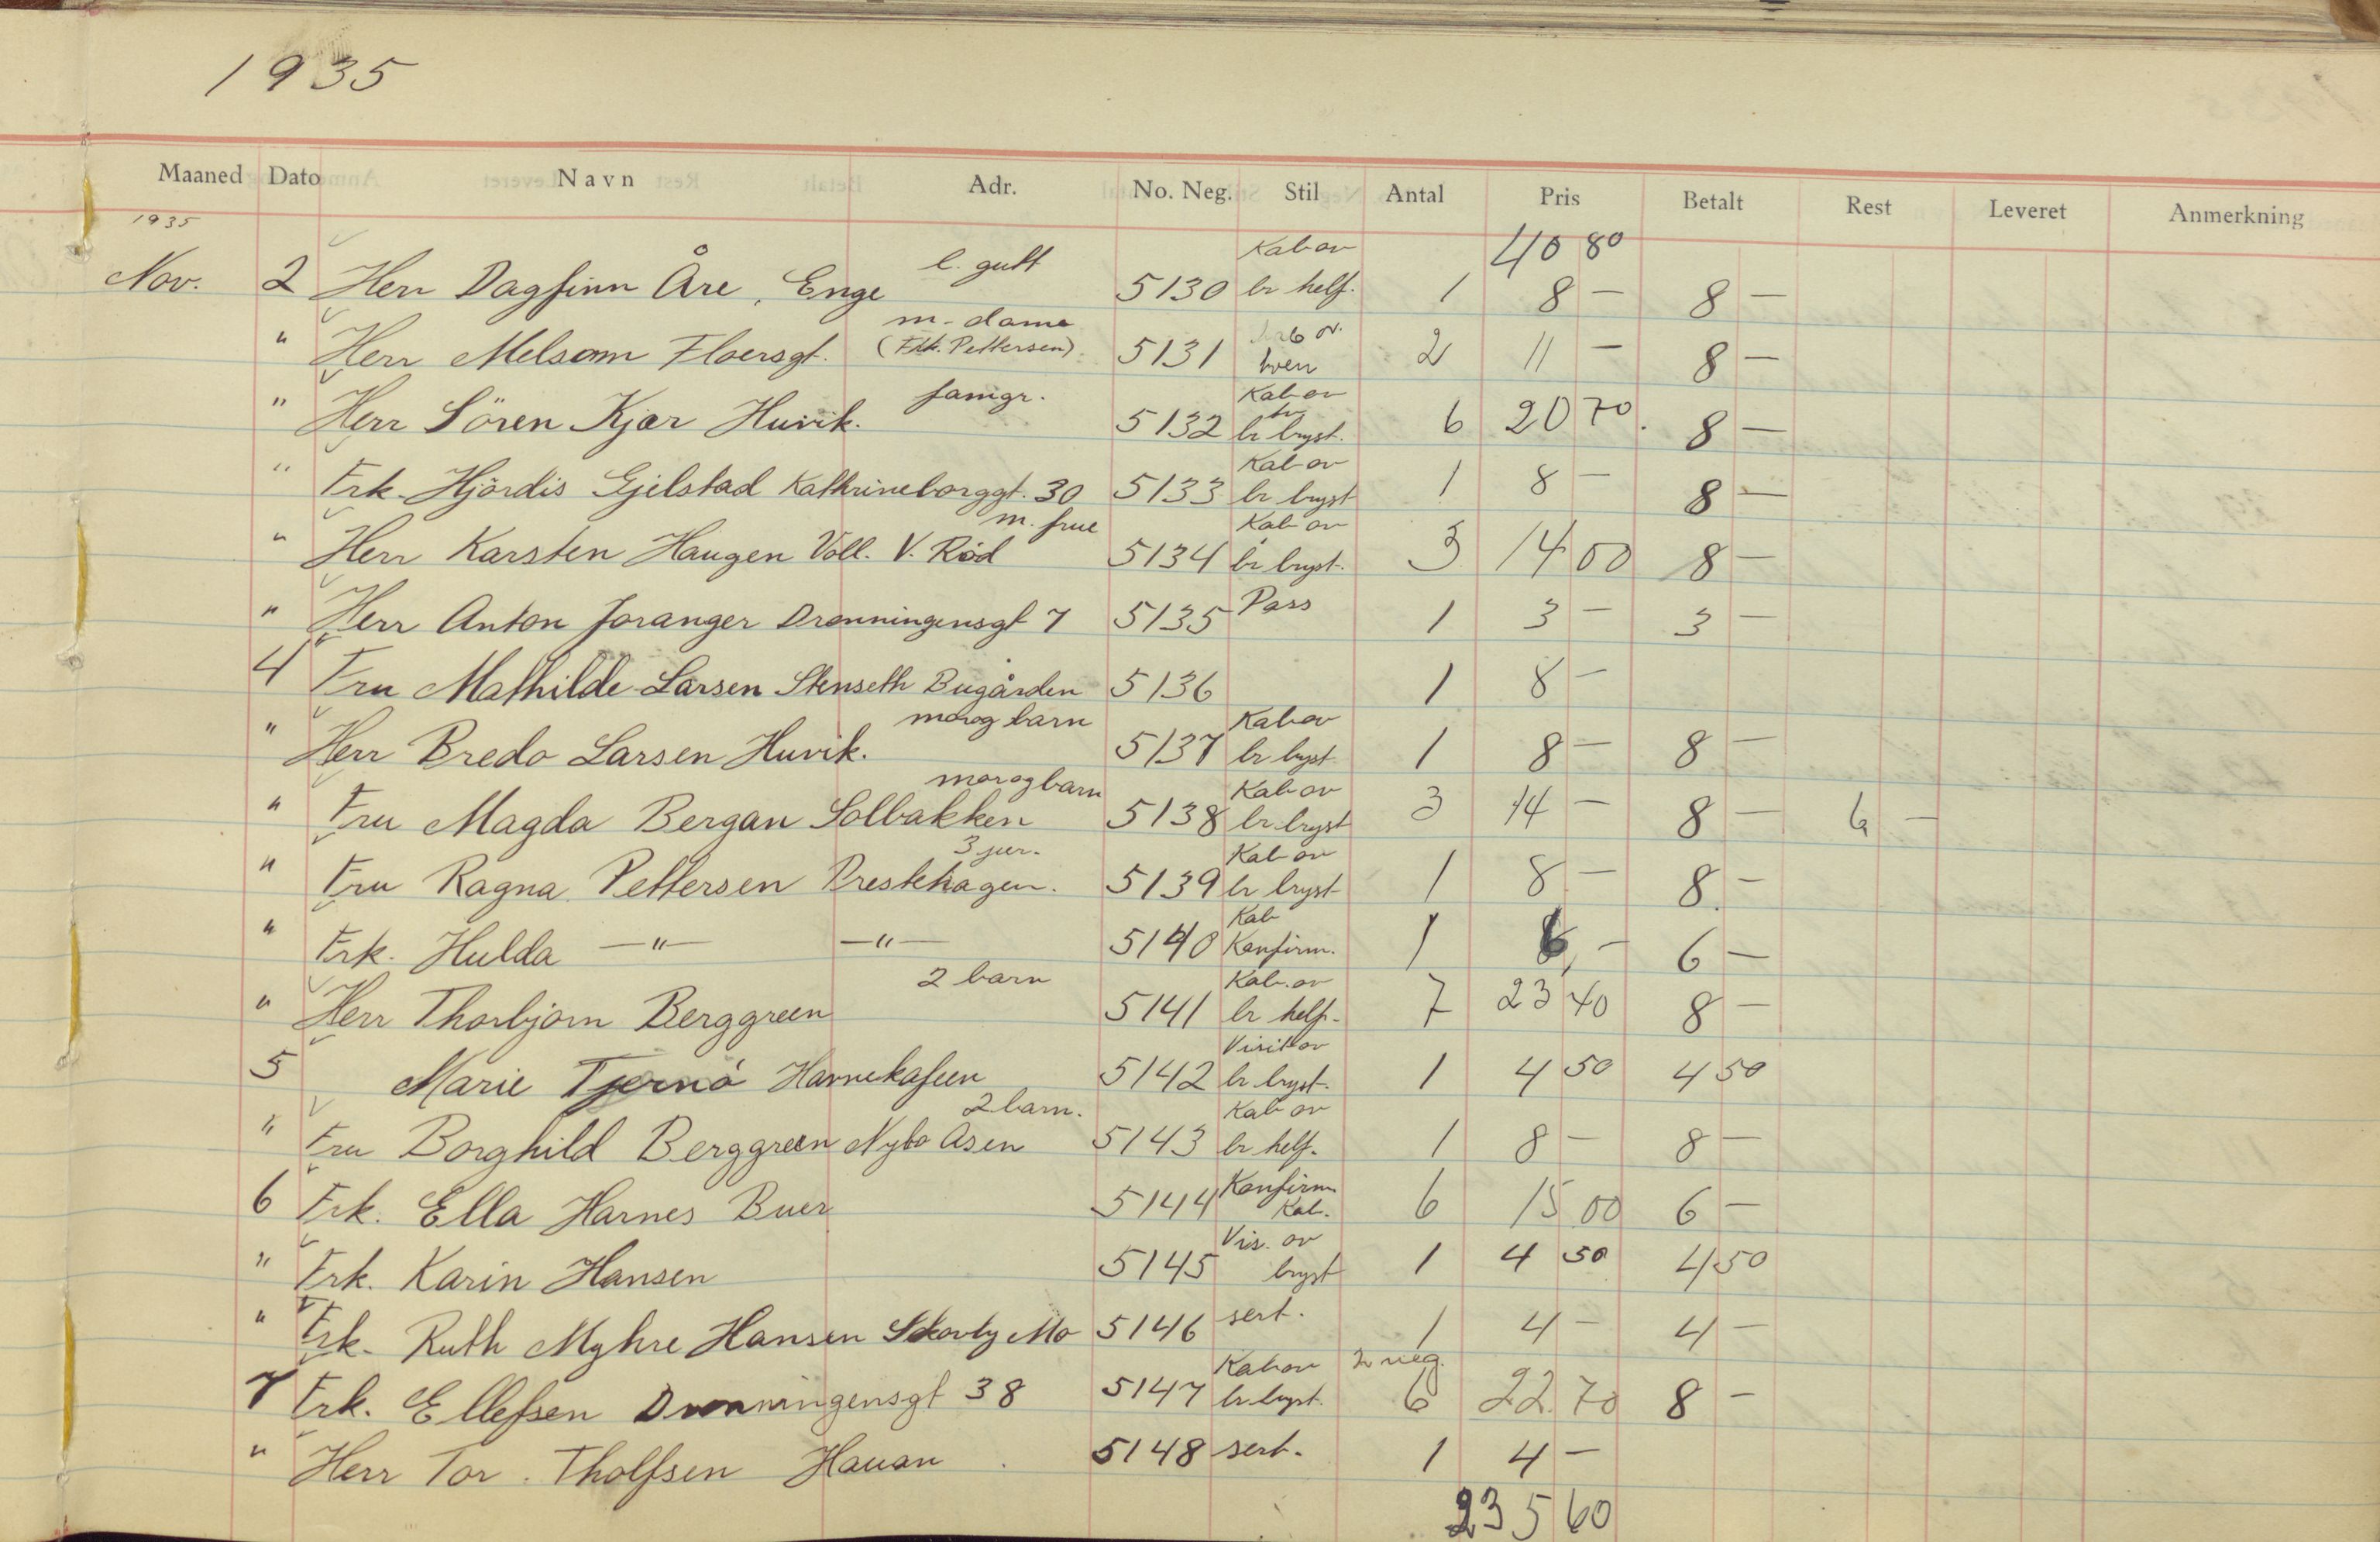 1935
Maaned Dato Navn Adr. No. Neg. Stil Antal Pris Betalt Rest Leveret Anmerkning
1935
40 80
l. gutt Kab ov
Nov. 2 Herr Dagfinn Åre, Enge 5130 br helf. 1 8 — 8 —
m-dame
" Herr Melsom Floersgt. (Frk. Pettersen) 5131 2 11 — 8 —
famgr. Kab ov
" Herr Sören Kjær Huvik. 5132 br bryst. 6 20 70. 8 —
Kab ov
" Frk. Hjördis Gjelstad Kathrineborggt. 30 5133 br bryst 1 8 — 8 —
m. frue Kab ov
" Herr Karsten Haugen Voll. V. Röd 5134 br bryst. 3 14 00 8 —
" Herr Anton Joranger Dronningensgt 7 5135 Pass 1 3 — 3 —
4 Fru Mathilde Larsen Stenseth Bugården 5136 1 8 —
mor og barn Kab ov
" Herr Bredo Larsen Huvik. 5137 br bryst 1 8 — 8 —
mor og barn Kab ov
" Fru Magda Bergan Solbakken 5138 br bryst 3 14 — 8 — 6 —
3 per. Kab ov
" Fru Ragna Pettersen Prestehagen. 5139 br bryst 1 8 — 8. —
Kab
" Frk. Hulda —"— —"— 5140 Konfirm. 1 6, — 6 —
2 barn Kab. ov
" Herr Thorbjørn Berggreen 5141 br helf. 7 23 40 8 —
Visit ov
5 Marie Tjernö Havnekafeen 5142 br bryst. 1 4 50 4 50
2 barn. Kab ov
" Fru Borghild Berggreen Nybo Åsen 5143 br helf. 1 8 — 8 —
6 Frk. Ella Harnes Buer 5144 Konfirm Kab. 6 15 00 6 —
Vis. ov
" Frk. Karin Hansen 5145 bryst 1 4 50 4 50
" Frk. Ruth Myhre Hansen Skovly Mo 5146 sert. 1 4 — 4 —
Kab ov 2 neg.
7 Frk. Ellefsen Dronningensgt 38 5147 br bryst. 6 22 70 8 —
" Herr Tor. Tholfsen Hauan 5148 sert. 1 4 —
235 60